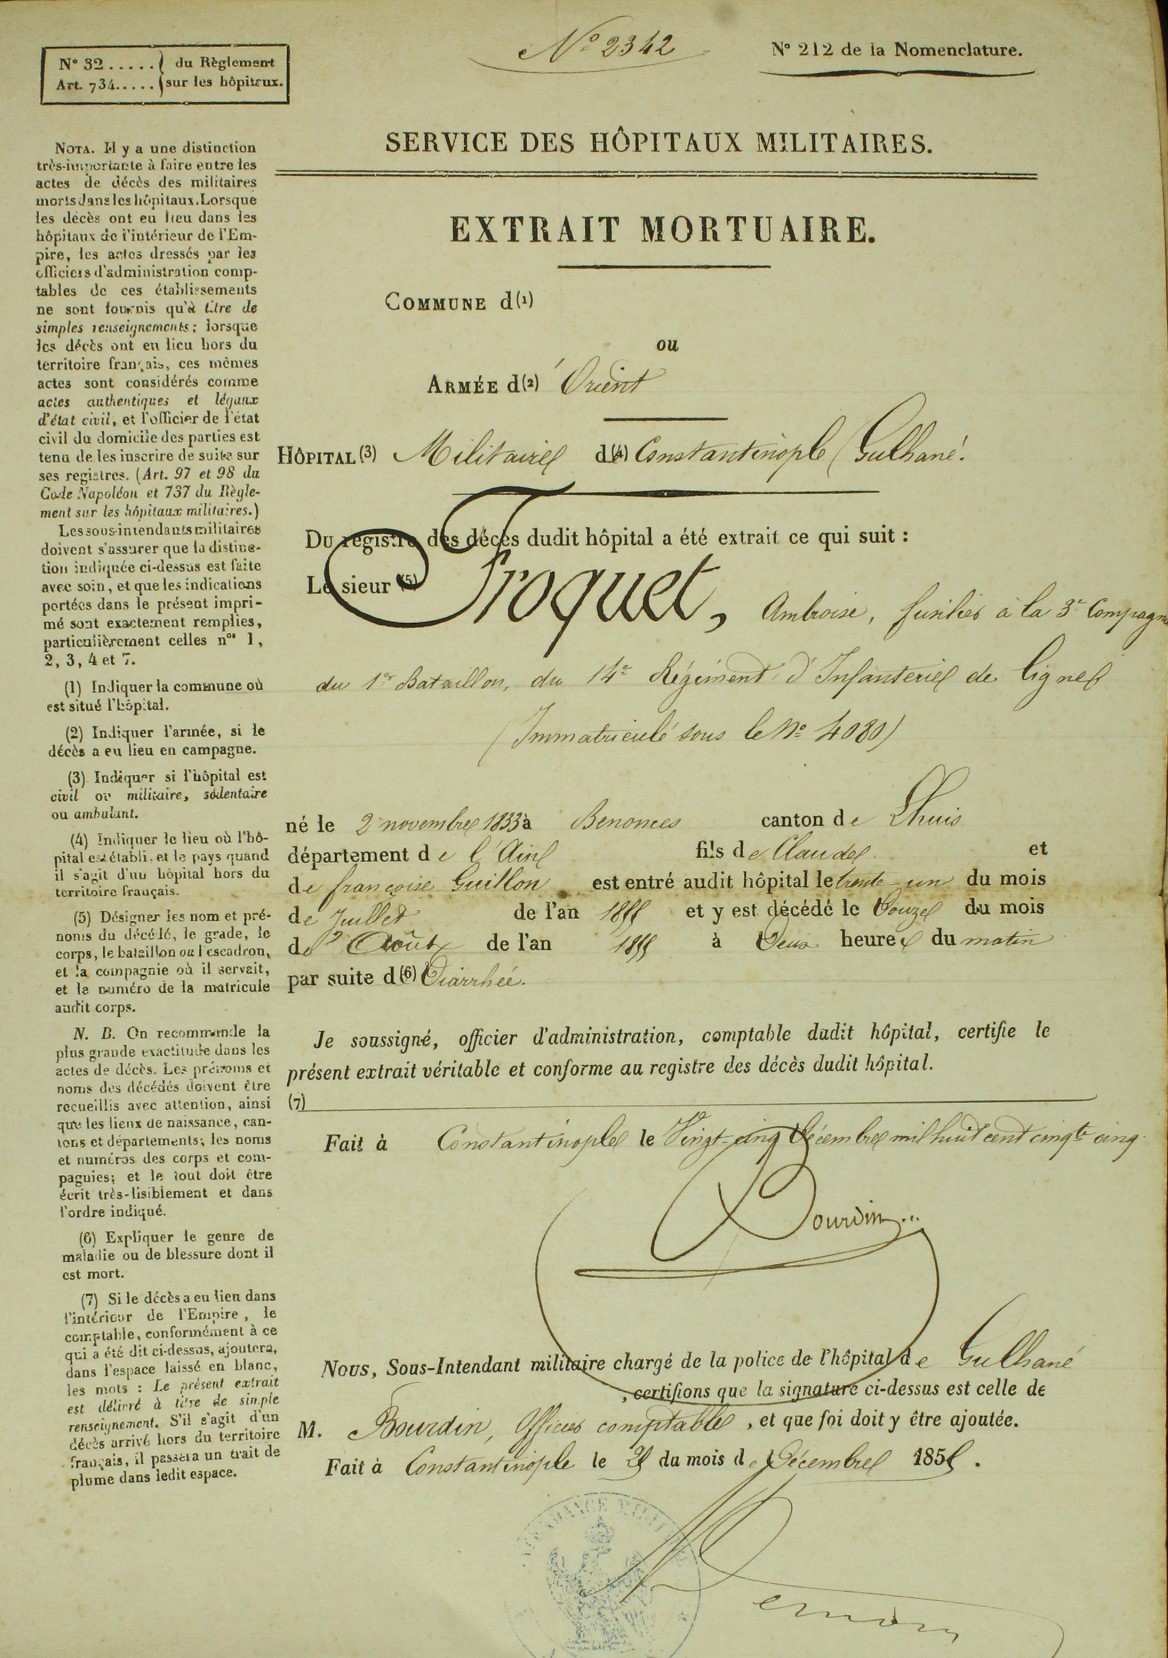 N° 2342
N° 32 ..... du Règlement
Art. 734..... sur les hôpitaux.
N° 212 de la Nomenclature.
SERVICE DES HÔPITAUX MILITAIRES.
EXTRAIT MORTUAIRE.
COMMUNE d(1)
ou
ARMÉE d(2) d'Orient
HÔPITAL (3) Militaire de(4) Constantinople (Gulhané.
Du registre des décès dudit hôpital a été extrait ce qui suit :
Le sieur (5) Froquet, Ambroise, fusilier à la 3e Compagnie
du 1er Bataillon, du 14e Régiment d'Infanterie de ligne
(Immatriculé sous le No 4080)
né le 2 novembre 1833 à Benonces canton de Lhuis
département de l'Ain fils de Claude et
de françoise Guillon est entré audit hôpital le trente-un du mois
de Juillet de l'an 1855 et y est décédé le Douze du mois
d'Août de l'an 1855 à Deux heures du matin
par suite d(6) Diarrhée.
Je soussigné, officier d'administration, comptable dudit hôpital, certifie le
présent extrait véritable et conforme au registre des décès dudit hôpital.
(7)
Fait à Constantinople le Vingt-cinq Décembre mil huit cent cinqte cinq.
Bourdin
Nous, Sous-Intendant militaire chargé de la police de l'hôpital de Gulhané
, certifions que la signature ci-dessus est celle de
M. Bourdin, Officier comptable, et que foi doit y être ajoutée.
Fait à Constantinople le 25 du mois de Décembre 1855.
NOTA. Il y a une distinction
très-importante à faire entre les
actes de décès des militaires
morts dans les hôpitaux. Lorsque
les décès ont eu lieu dans les
hôpitaux de l'intérieur de l'Em-
pire, les actes dressés par les
officiers d'administration comp-
tables de ces établissements
ne sont fournis qu'à titre de
simples renseignements ; lorsque
les décès ont eu lieu hors du
territoire français, ces mêmes
actes sont considérés comme
actes authentiques et légaux
d'état civil, et l'officier de l'état
civil du domicile des parties est
tenu de les inscrire de suite sur
ses registres. (Art. 97 et 98 du
Code Napoléon et 737 du Règle-
ment sur les hôpitaux militaires.)
Les sous-intendants militaires
doivent s'assurer que la distinc-
tion indiquée ci-dessus est faite
avec soin, et que les indications
portées dans le présent impri-
mé sont exactement remplies,
particulièrement celles nos 1,
2, 3, 4 et 7.
(1) Indiquer la commune où
est situé l'hôpital.
(2) Indiquer l'armée, si le
décès a eu lieu en campagne.
(3) Indiquer si l'hôpital est
civil ou militaire, sédentaire
ou ambulant.
(4) Indiquer le lieu où l'hô-
pital est établi, et le pays quand
il s'agit d'un hôpital hors du
territoire français.
(5) Désigner les nom et pré-
noms du décédé, le grade, le
corps, le bataillon ou l'escadron,
et la compagnie où il servait,
et le numéro de la matricule
audit corps.
N. B. On recommande la
plus grande exactitude dans les
actes de décès. Les prénoms et
noms des décédés doivent être
recueillis avec attention, ainsi
que les lieux de naissance, can-
tons et départements; les noms
et numéros des corps et com-
pagnies; et le tout doit être
écrit très-lisiblement et dans
l'ordre indiqué.
(6) Expliquer le genre de
maladie ou de blessure dont il
est mort.
(7) Si le décès a eu lieu dans
l'intérieur de l'Empire, le
comptable, conformément à ce
qui a été dit ci-dessus, ajoutera,
dans l'espace laissé en blanc,
les mots : Le présent extrait
est délivré à titre de simple
renseignement. S'il s'agit d'un
décès arrivé hors du territoire
français, il passera un trait de
plume dans ledit espace.